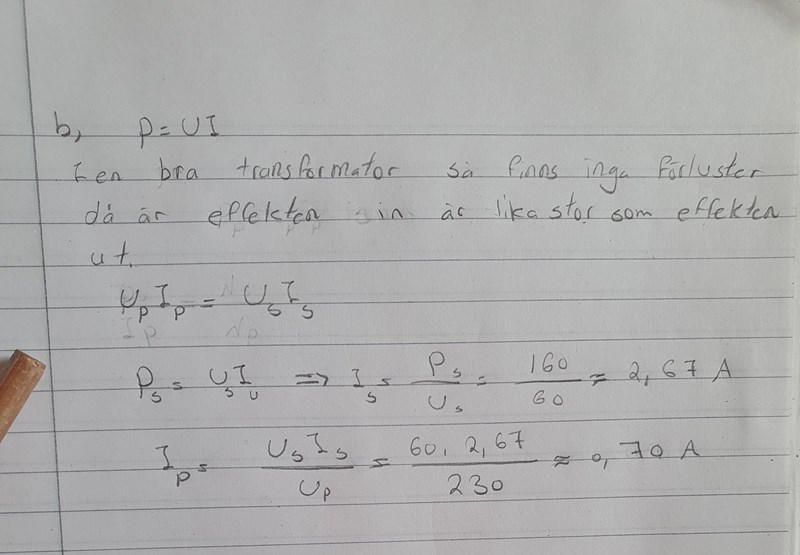 b, P = UI
I en bra transformator så finns inga förluster
då är effekten in är lika stor som effekten
ut.
U_p I_p = U_s I_s
P_s = U_s I_u => I_s = P_s / U_s = 160 / 60 ≈ 2,67 A
I_p = U_s I_s / U_p = 60 . 2,67 / 230 ≈ 0,70 A